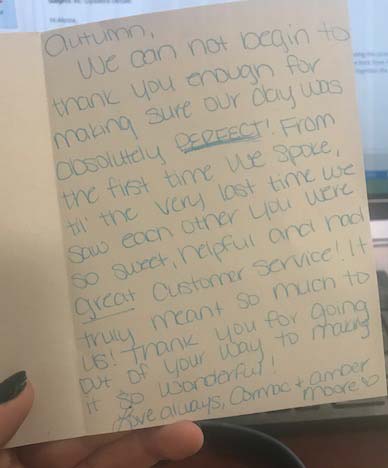 Autumn,
We can not begin to
thank you enough for
making sure our day was
absolutely PERFECT! From
the first time we spoke,
til' the very last time we
saw each other you were
so sweet, helpful and had
great customer service! It
truly meant so much to
us! Thank you for going
out of your way to making
it so wonderful!
Love always, Connac + amber
moore